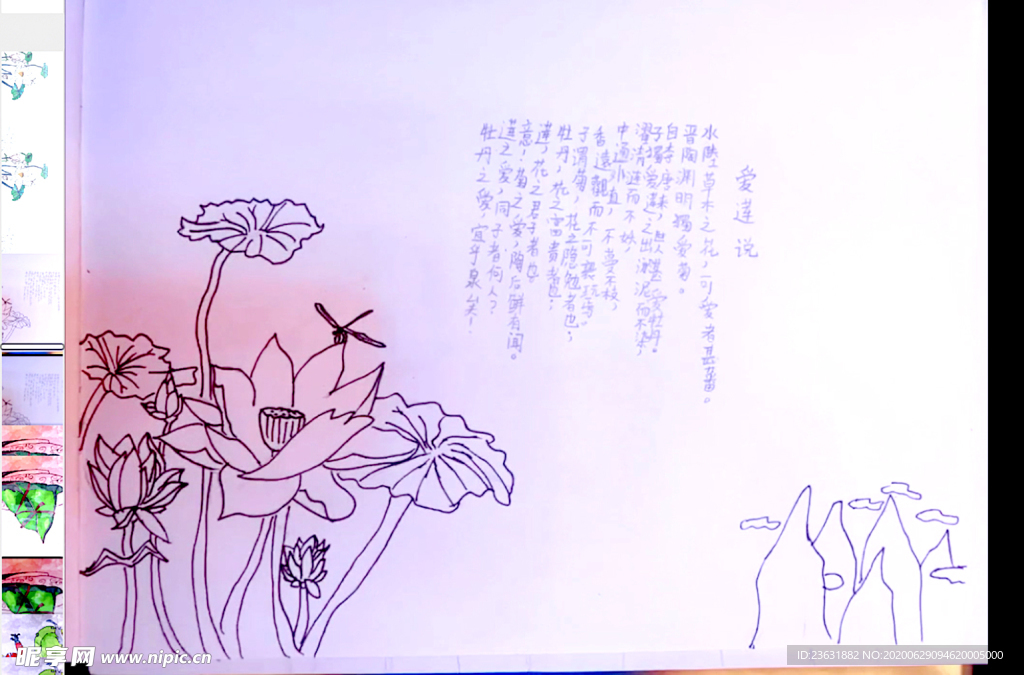 爱莲说
水陸草木之花,可爱者甚蕃。
晋陶渊明獨爱菊。
自李唐来,世人甚爱牡丹。
予獨爱蓮之出淤泥而不染,
濯清涟而不妖,
中通外直,不蔓不枝,
香遠
觀而不可褻玩焉。
予謂菊,花之隐逸者也;
牡丹,花之富貴者也;
蓮,花之君子者也。
意!菊之爱,陶后鲜有闻。
蓮之爱,同予者何人?
牡丹之爱,宜乎衆矣!
昵享网 www.nipic.cn
ID:23631882 NO:20200629094620005000